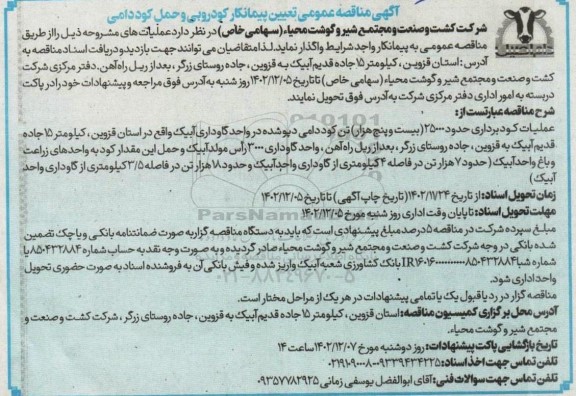 آگهی مناقصه عمومی تعیین پیمانکار کودروبی و حمل کود دامی
شرکت کشت و صنعت و مجتمع شیر و گوشت محیاء (سهامی خاص) در نظر دارد عملیات های مشروحه ذیل را از طریق
مناقصه عمومی به پیمانکار واجد شرایط واگذار نماید. لذا متقاضیان می توانند جهت بازدید و دریافت اسناد مناقصه به
آدرس: استان قزوین، کیلومتر ۱۵ جاده قدیم آبیک به قزوین، جاده روستای زرگر، بعد از ریل راه آهن، دفتر مرکزی شرکت
کشت و صنعت و مجتمع شیر و گوشت محیاء (سهامی خاص) تا تاریخ ۱۴۰۲/۱۲/۰۵ روز شنبه به آدرس فوق مراجعه و پیشنهادات خود را در پاکت
دربسته به امور اداری دفتر مرکزی شرکت به آدرس فوق تحویل نمایند.
شرح مناقصه عبارتست از:
عملیات کودبرداری حدود ۲۵۰۰۰ (بیست و پنج هزار) تن کود دامی دپو شده در واحد گاوداری آبیک واقع در استان قزوین، کیلومتر ۱۵ جاده
قدیم آبیک به قزوین، جاده روستای زرگر، بعد از ریل راه آهن، واحد گاوداری ۳۰۰۰ رأس مولد آبیک و حمل این مقدار کود به واحدهای زراعت
و باغ واحد آبیک (حدود ۷ هزار تن در فاصله ۴ کیلومتری از گاوداری واحد آبیک و حدود ۱۸ هزار تن در فاصله ۳/۵ کیلومتری از گاوداری واحد
آبیک)
زمان تحویل اسناد: از تاریخ ۱۴۰۲/۱۱/۲۴ (تاریخ چاپ آگهی) تا تاریخ ۱۴۰۲/۱۲/۰۵
مهلت تحویل اسناد: تا پایان وقت اداری روز شنبه مورخ ۱۴۰۲/۱۲/۰۵
مبلغ سپرده شرکت در مناقصه ۵ درصد مبلغ پیشنهادی است که باید به دستگاه مناقصه گزار به صورت ضمانتنامه بانکی و یا چک تضمین
شده بانکی در وجه شرکت کشت و صنعت و مجتمع شیر و گوشت محیاء صادر گردیده و به صورت وجه نقد به حساب شماره ۸۵۰۴۳۲۸۸۴ با
بانک کشاورزی شعبه آبیک واریز شده و فیش بانکی آن به فروشنده اسناد به صورت حضوری تحویل
واحد اداری شود.
مناقصه گزار در رد یا قبول یک یا تمامی پیشنهادات در هر یک از مراحل مختار است.
آدرس محل برگزاری کمیسیون مناقصه: استان قزوین، کیلومتر ۱۵ جاده قدیم آبیک به قزوین، جاده روستای زرگر، شرکت کشت و صنعت و
مجتمع شیر و گوشت محیاء.
تاریخ بازگشایی پاکت پیشنهادات: روز دوشنبه مورخ ۱۴۰۲/۱۲/۰۷ ساعت ۱۴
تلفن تماس جهت اخذ اسناد: ۰۹۳۳۹۴۳۴۲۲۵-۰۲۱۹۱۰۹۰۰۸۰
تلفن تماس جهت سوالات فنی: آقای ابوالفضل یوسفی زمانی ۰۹۳۵۷۷۸۲۹۲۵